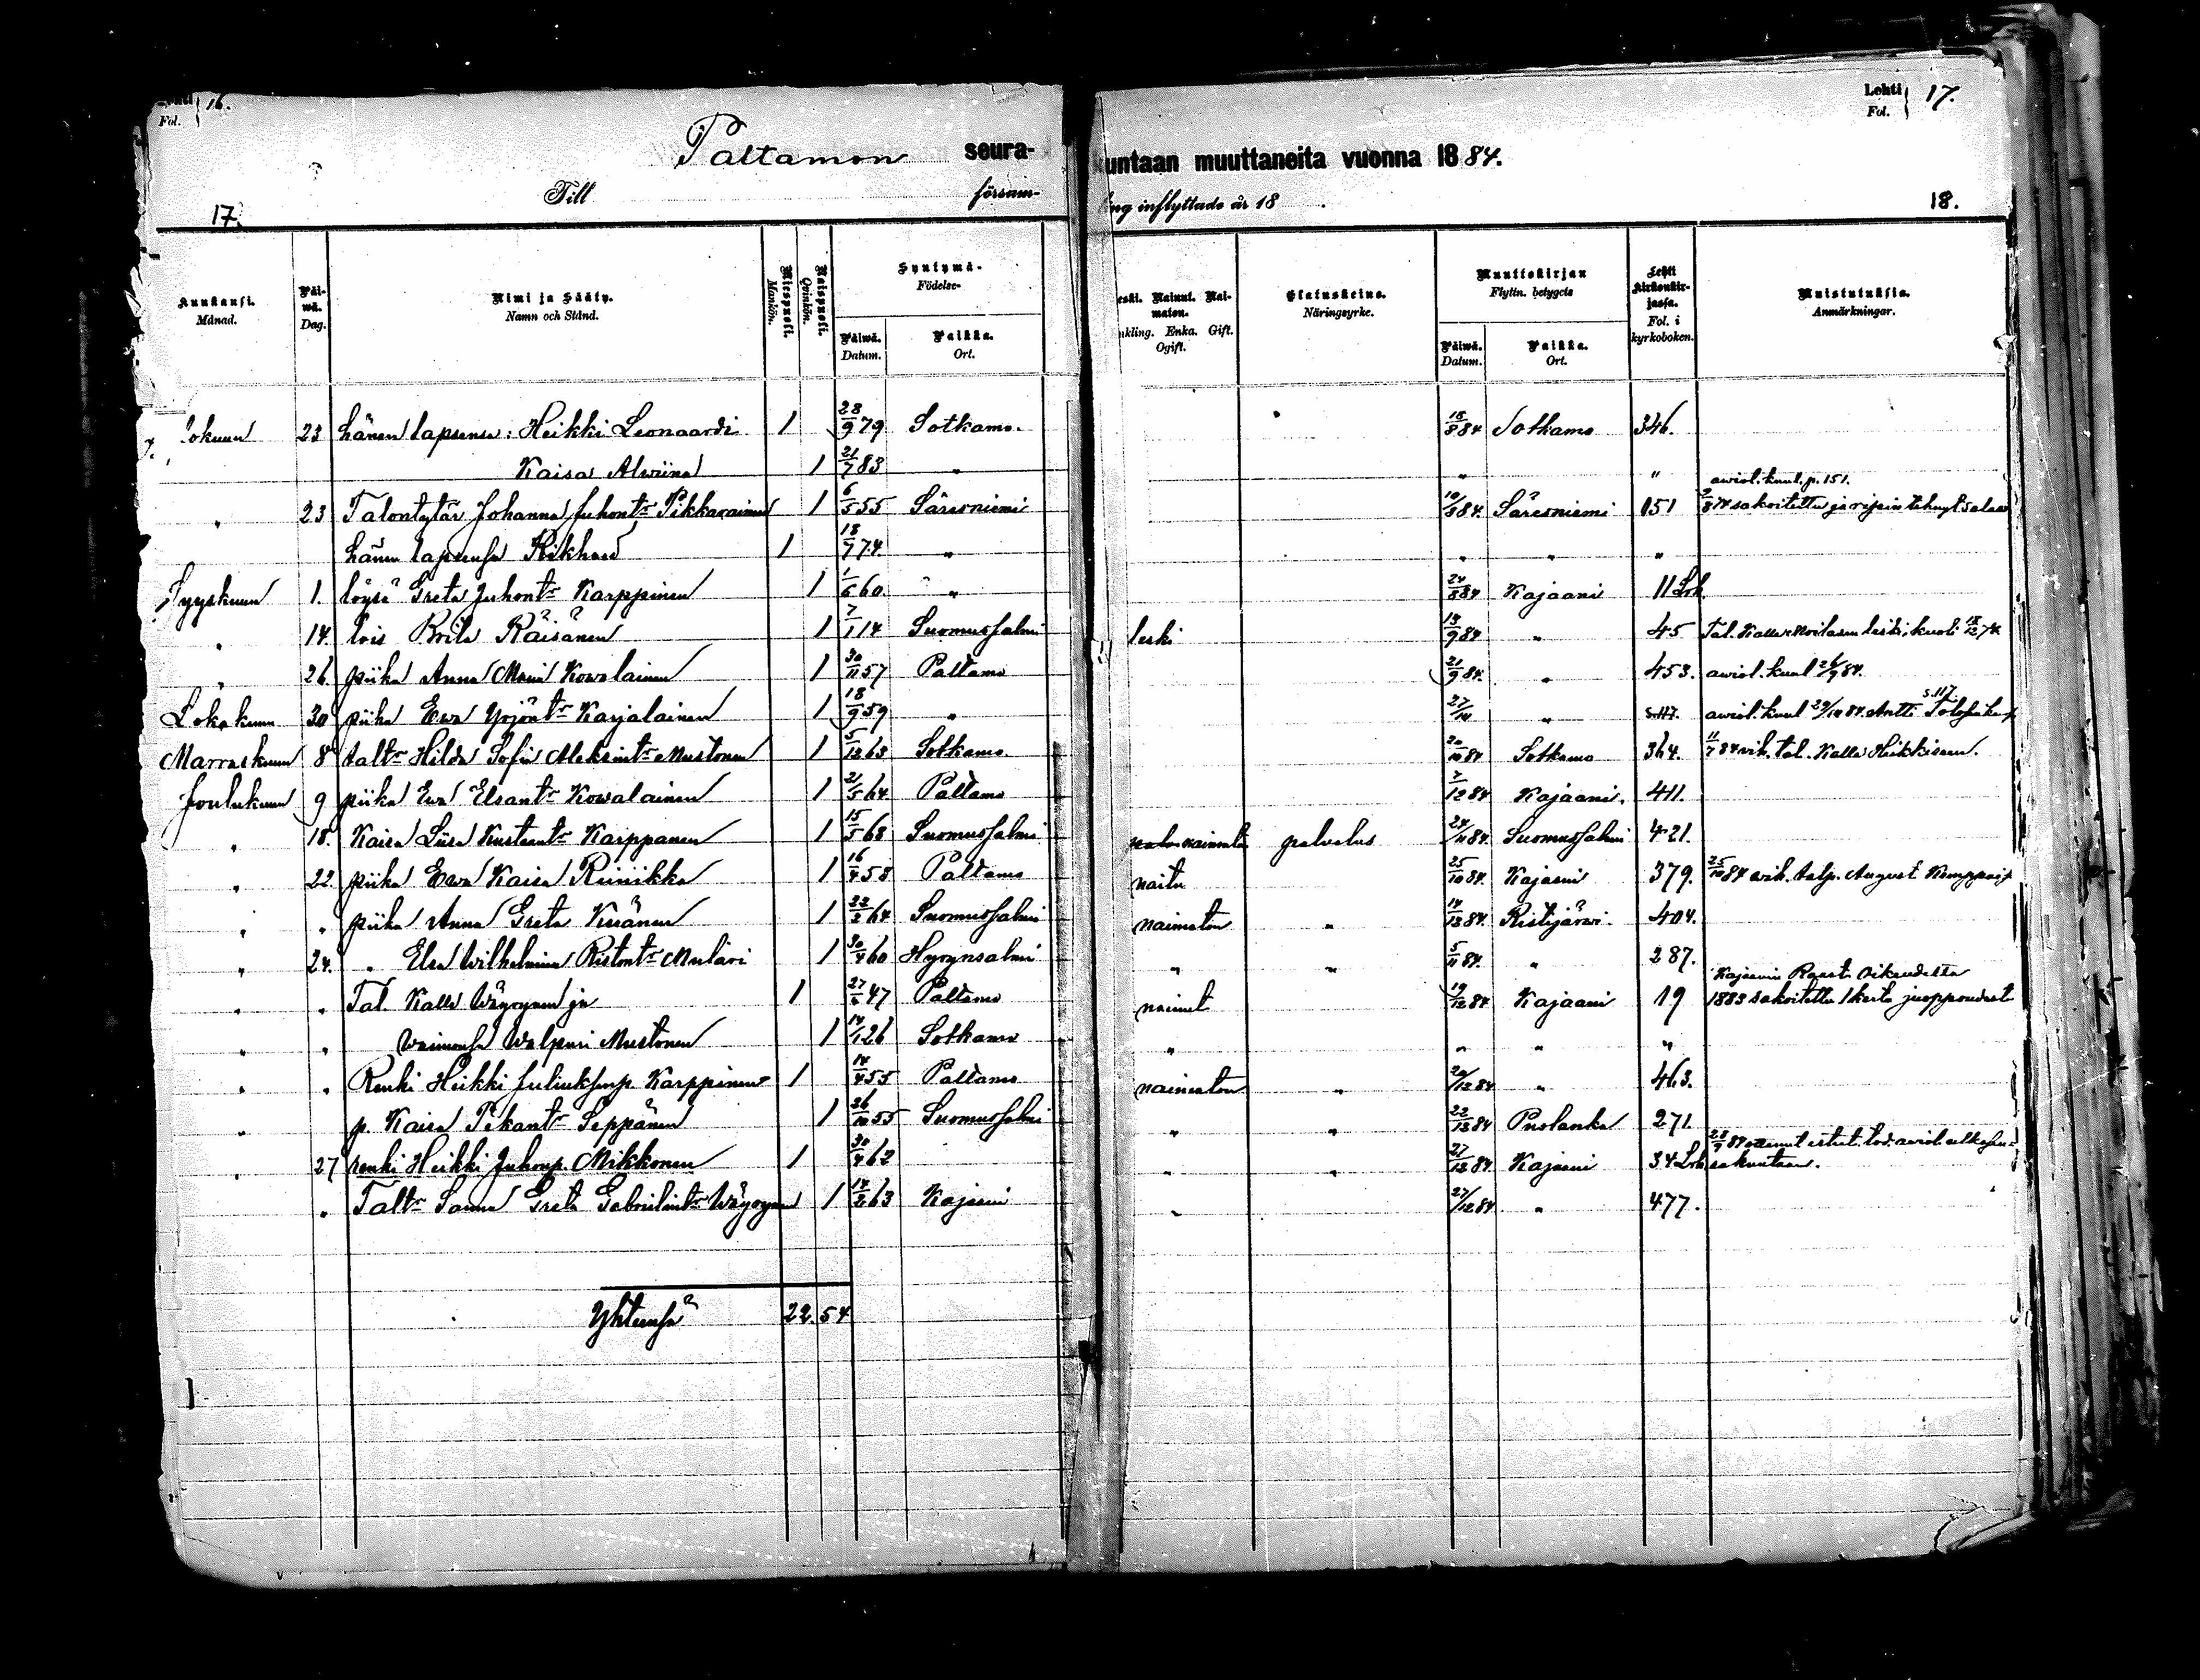 Fol. 16.
Lehti Fol. 17.
Paltamon seura-
kuntaan muuttaneita vuonna 1884.
Till försam-
ing inflyttade år 18
17.
18.
Kuukausi. Månad. Päi-wä. Dag. Nimi ja Sääty. Namn och Stånd. Miespuoli. Mankön. Naispuoli. Qvinkön. Syntymä- Födelse- Päiwä. Datum. Paikka. Ort. eski. Nainut. Nai-maton. nkling. Enka. Gift. Ogift. Elatuskeino. Näringsyrke. Muuttokirjan Flyttn. betygets Päiwä. Datum. Paikka. Ort. Lehti kirkonkir-jassa. Fol. i kyrkoboken. Muistutuksia. Anmärkningar.
lokuun 23 hänen lapsensa: Heikki Leonaardi 1 28/9 79 Sotkamo. 18/8 84 Sotkamo 346.
Kaisa Alwiina 1 21/7 83 " " "
awiol. kuul. p. 151.
" 23 Talontytär Johanna Juhontr Pikkarainen 1 6/5 55 Säresniemi 10/8 84. Säresniemi 151 sakoitettu ja ripin tehnyt salaw
hänen lapsensa Rikhard 1 18/7 74 " " " "
Syyskuun 1. löysä Greta Juhontr Karppinen 1 1/6 60. " 24/8 84 Kajaani 11 Lrk
" 14. lois Brita Räisänen 1 7/1 14 Suomussalmi leski 13/9 84 " 45 Tal. Kalle Moilasen leski, kuoli
" 26. piika Anna Maria Kowalainen 1 30/11 57 Paltamo 21/9 84. " 453. awiol. kuul 26/9 84.
Lokakuun 30 piika Ewa Yrjöntr Karjalainen 1 18/9 59 " 27/10 " s. 117. awiol. kuul 29/10 84. Antti s. 117.
Marraskuun 8 taltr Hilda Sofia Aleksintr Mustonen 1 5/12 63 Sotkamo 20/10 84 Sotkamo 364. 11/7 84 wih. tal. Kalle Heikkiseen.
Joulukuun 9 piika Ewa Elsantr Kowalainen 1 21/5 64 Paltamo 7/12 84 Kajaani. 411.
" 18. Kaisa Liisa Kustaantr Karppanen 1 15/5 68 Suomussalmi palvelus 24/11 84. Suomussalmi 421.
" 22. piika Ewa Kaisa Riinikka 1 16/4 58 Paltamo naitu 25/10 84. Kajaani 379. 25/10 84 wih. talp. August
" " piika Anna Greta Kinänen 1 22/2 64 Suomussalmi naimaton " 14/12 84. Ristijärwi. 404.
" 24. " Elsa Wilhelmina Ristontr Mulari 1 30/4 60 Hyrynsalmi " " 5/11 84. " 287.
Kajaanin Raast. Oikeudessa
" " Tal. Kalle Wäyrynen ja 1 27/6 47 Paltamo nainut 19/12 84. Kajaani 19 1883 sakoitettu 1 kerta juoppoudesta
" " waimonsa Walpuri Mustonen 1 14/1 26 Sotkamo " " " "
" " Renki Heikki Juliuksenp. Karppinen 1 14/4 55 Paltamo naimaton " 20/12 84 " 463.
" p. Kaisa Pekantr Seppänen 1 26/10 55 Suomussalmi " " 22/12 84 Puolanka 271.
" 27 renki Heikki Juhonp. Mikkonen 1 30/4 62 " " 27/12 84. Kajaani 34 Lrk 28/9 84 saanut estut. tod. awiol. ulkoseu-
rakuntaan.
" Taltr Sanna Greta Gabrielintr Wäyrynen 1 14/2 63 Kajaani " 27/12 84. " 477.
Yhteensä 22. 54